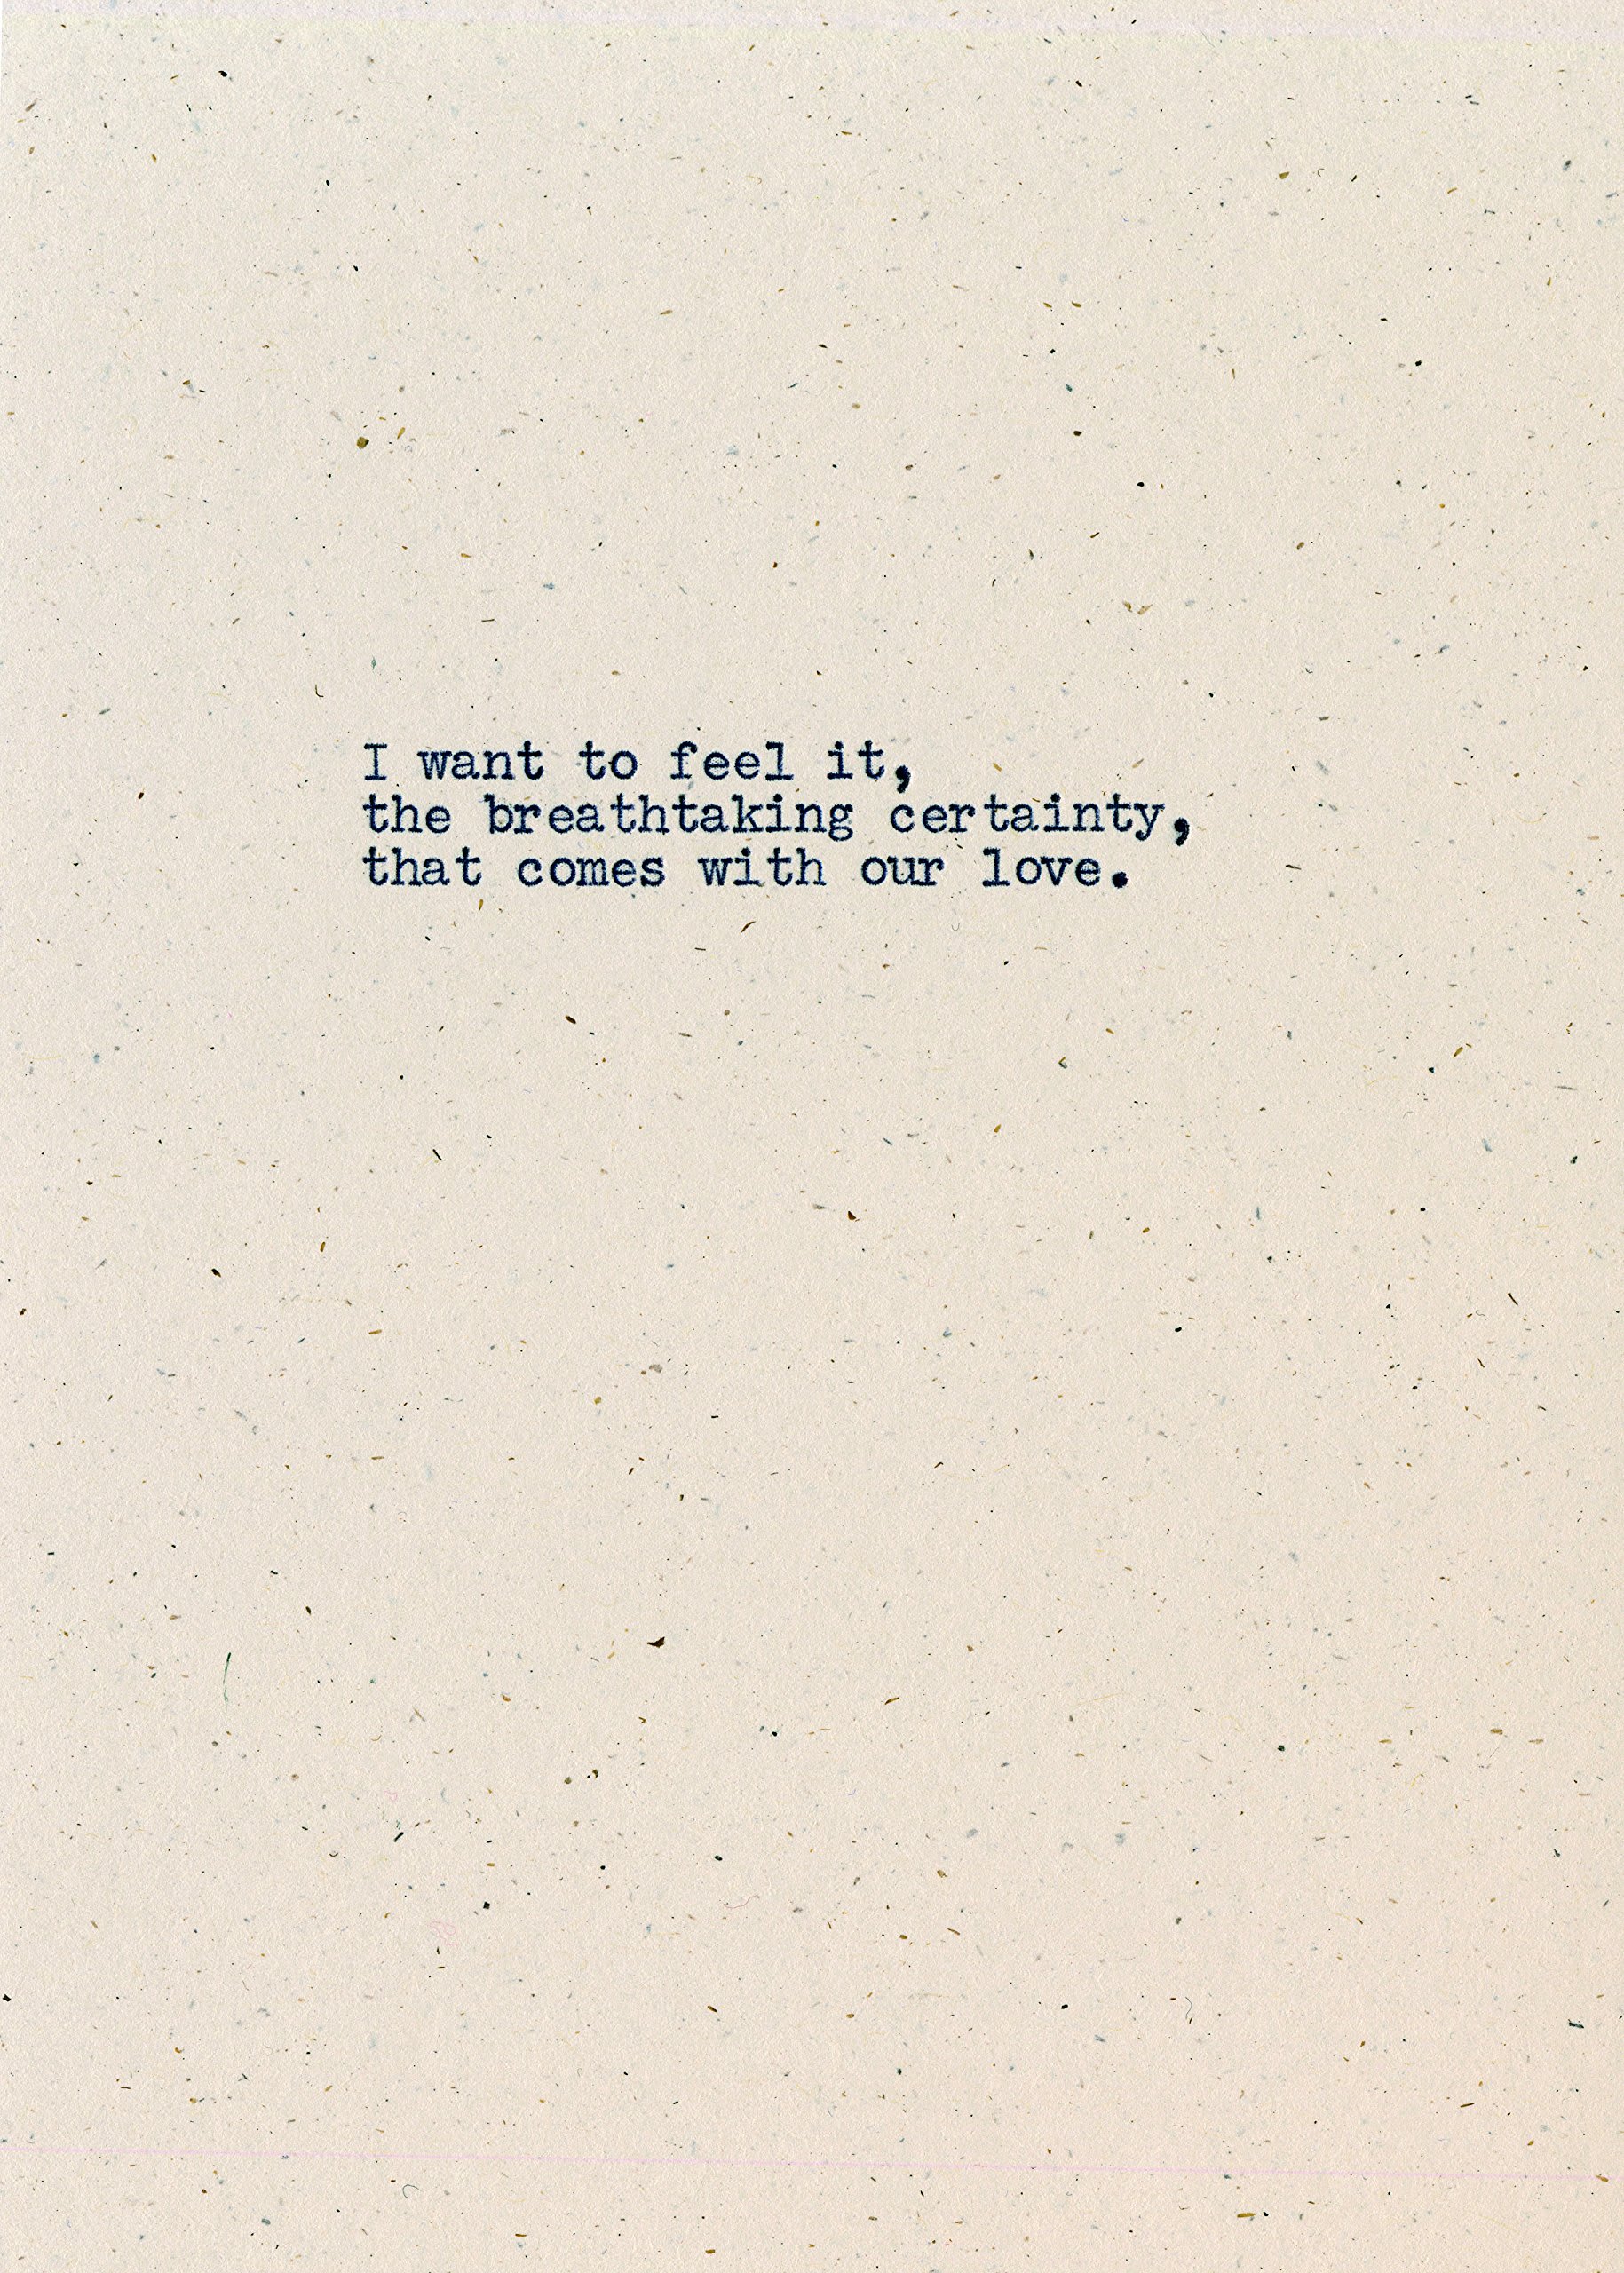 I want to feel it,
the breathtaking certainty,
that comes with our love.